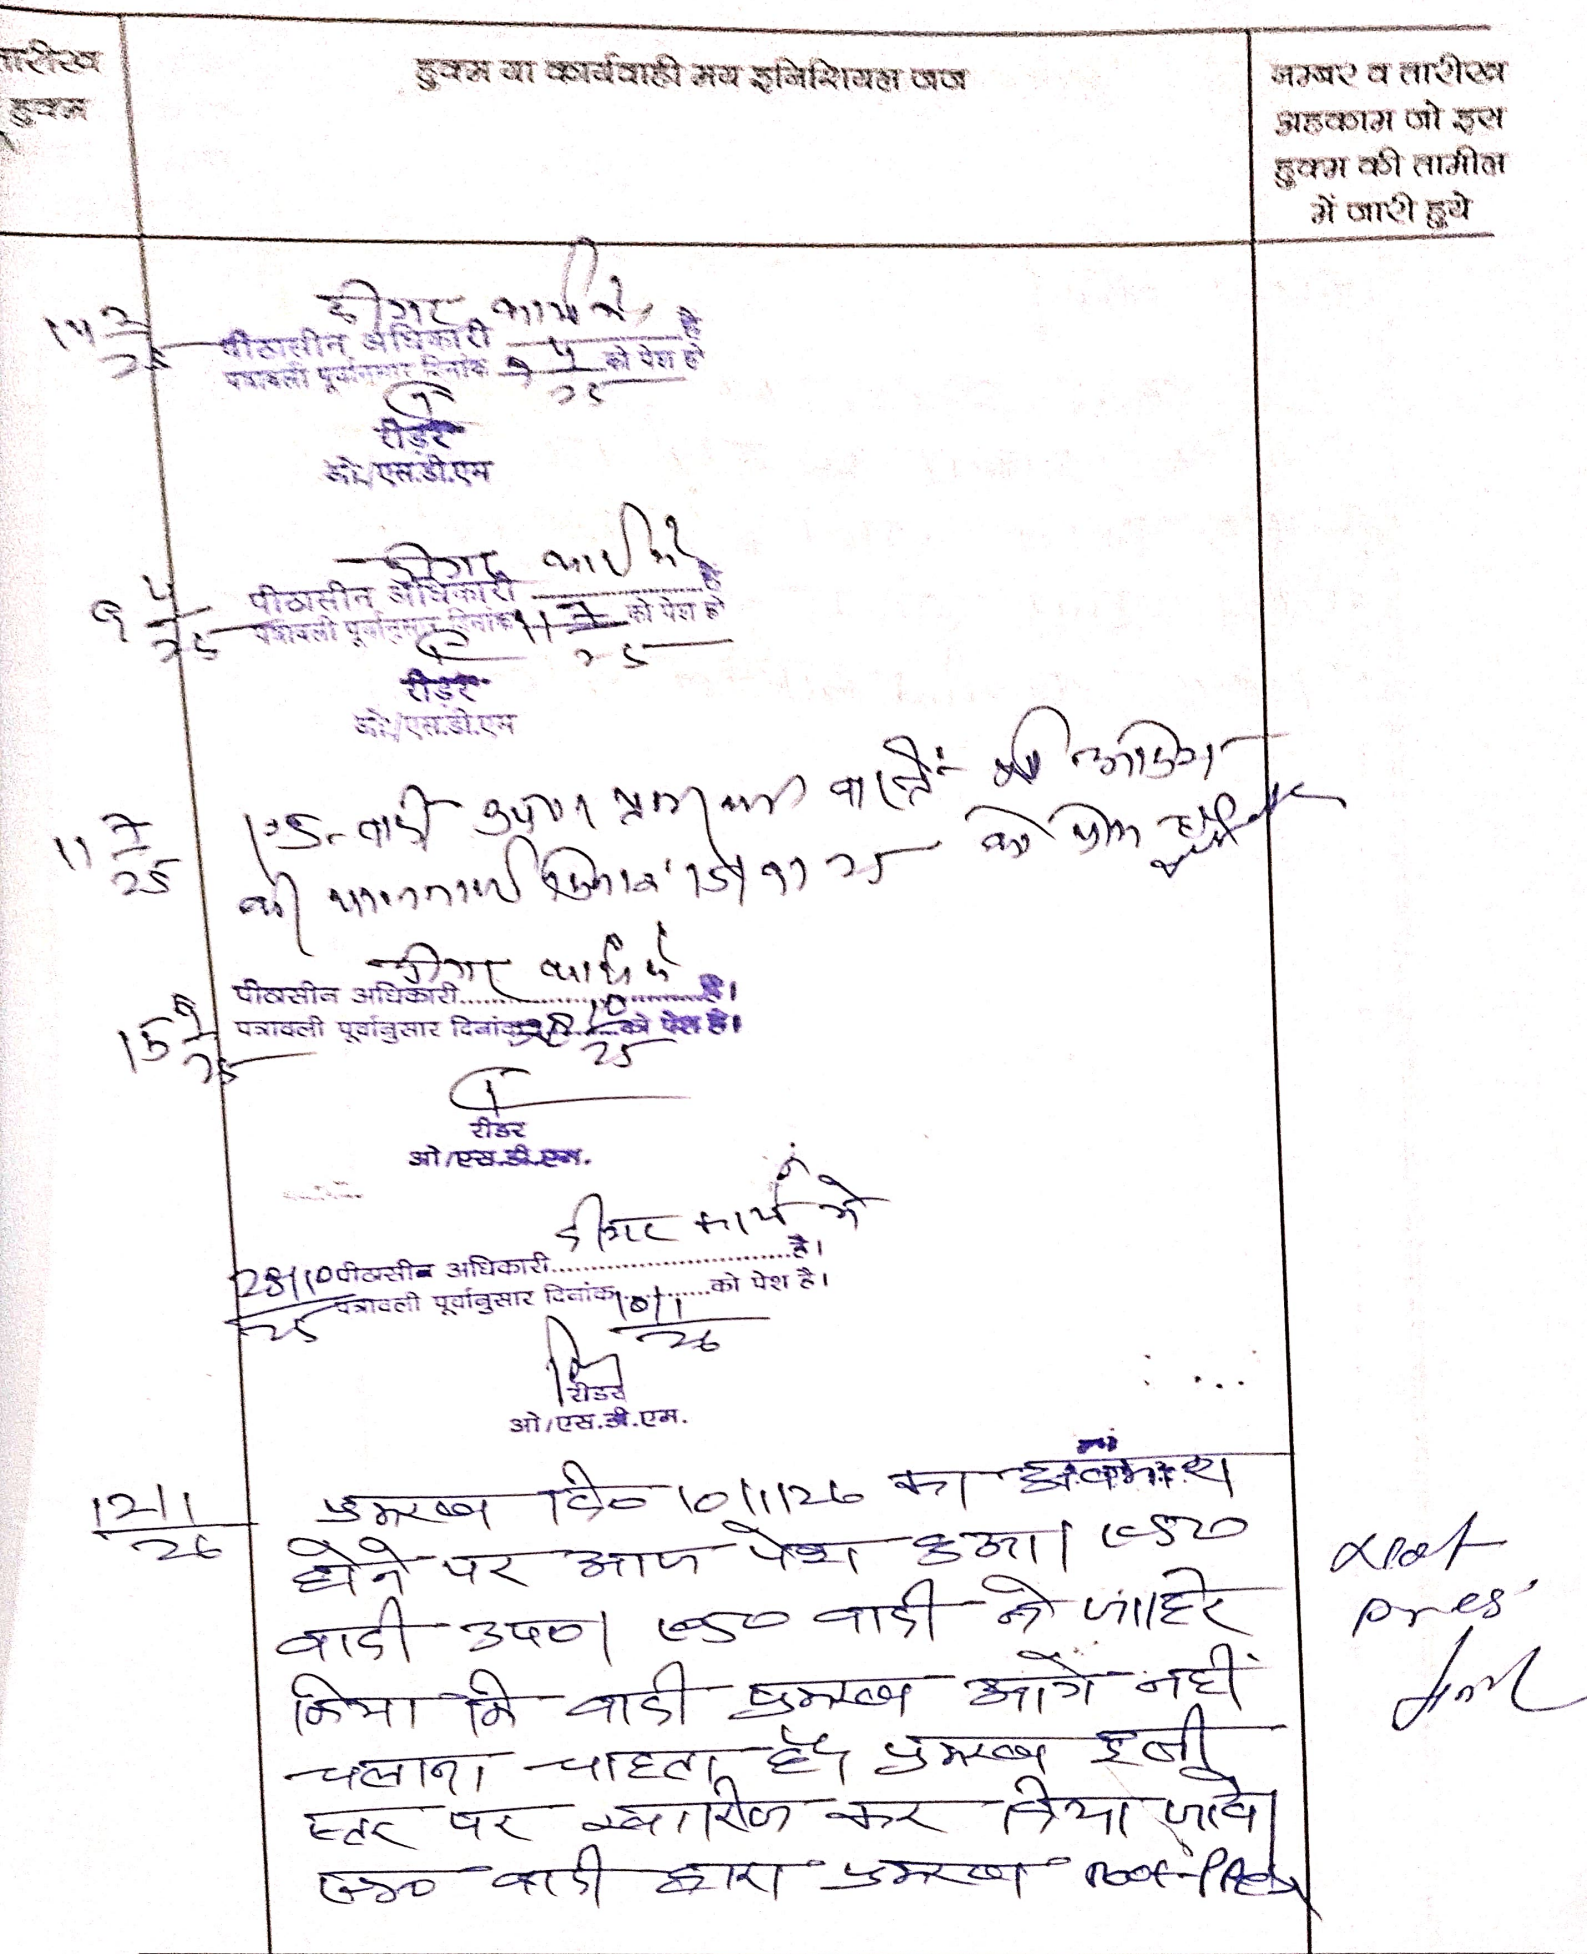 तारीख
हुक्म
हुक्म या कार्यवाही मय इनिशियल जज
नम्बर व तारीख
अहकाम जो इस
हुक्म की तामील
में जारी हुये
14 2/25
दीगर कार्य में
पीठासीन अधिकारी है
पत्रावली पूर्वानुसार दिनांक 9 4/25 को पेश हो
रीडर
ओ/एस.डी.एम
9 4/25
दीगर कार्य में
पीठासीन अधिकारी है
पत्रावली पूर्वानुसार दिनांक 11 7/25 को पेश हो
रीडर
ओ/एस.डी.एम
11 7/25
वादी
को
की दिनांक 15/9/25 को पेश
15 9/25
दीगर कार्य में
पीठासीन अधिकारी..........है।
पत्रावली पूर्वानुसार दिनांक 28 10/25 को पेश है।
रीडर
ओ/एस.डी.एम.
28/10/25
दीगर कार्य में
पीठासीन अधिकारी..........है।
पत्रावली पूर्वानुसार दिनांक 10/1/26 को पेश है।
रीडर
ओ/एस.डी.एम.
12/1/26
प्रकरण दि० 10/1/26 का अवकाश
होने पर आज पेश हुआ। एड०
वादी उप०। एड० वादी ने जाहिर
किया कि वादी प्रकरण आगे नहीं
चलाना चाहता है। प्रकरण इसी
स्तर पर खारिज कर दिया जावे।
एड० वादी द्वारा प्रकरण not-press
not
press